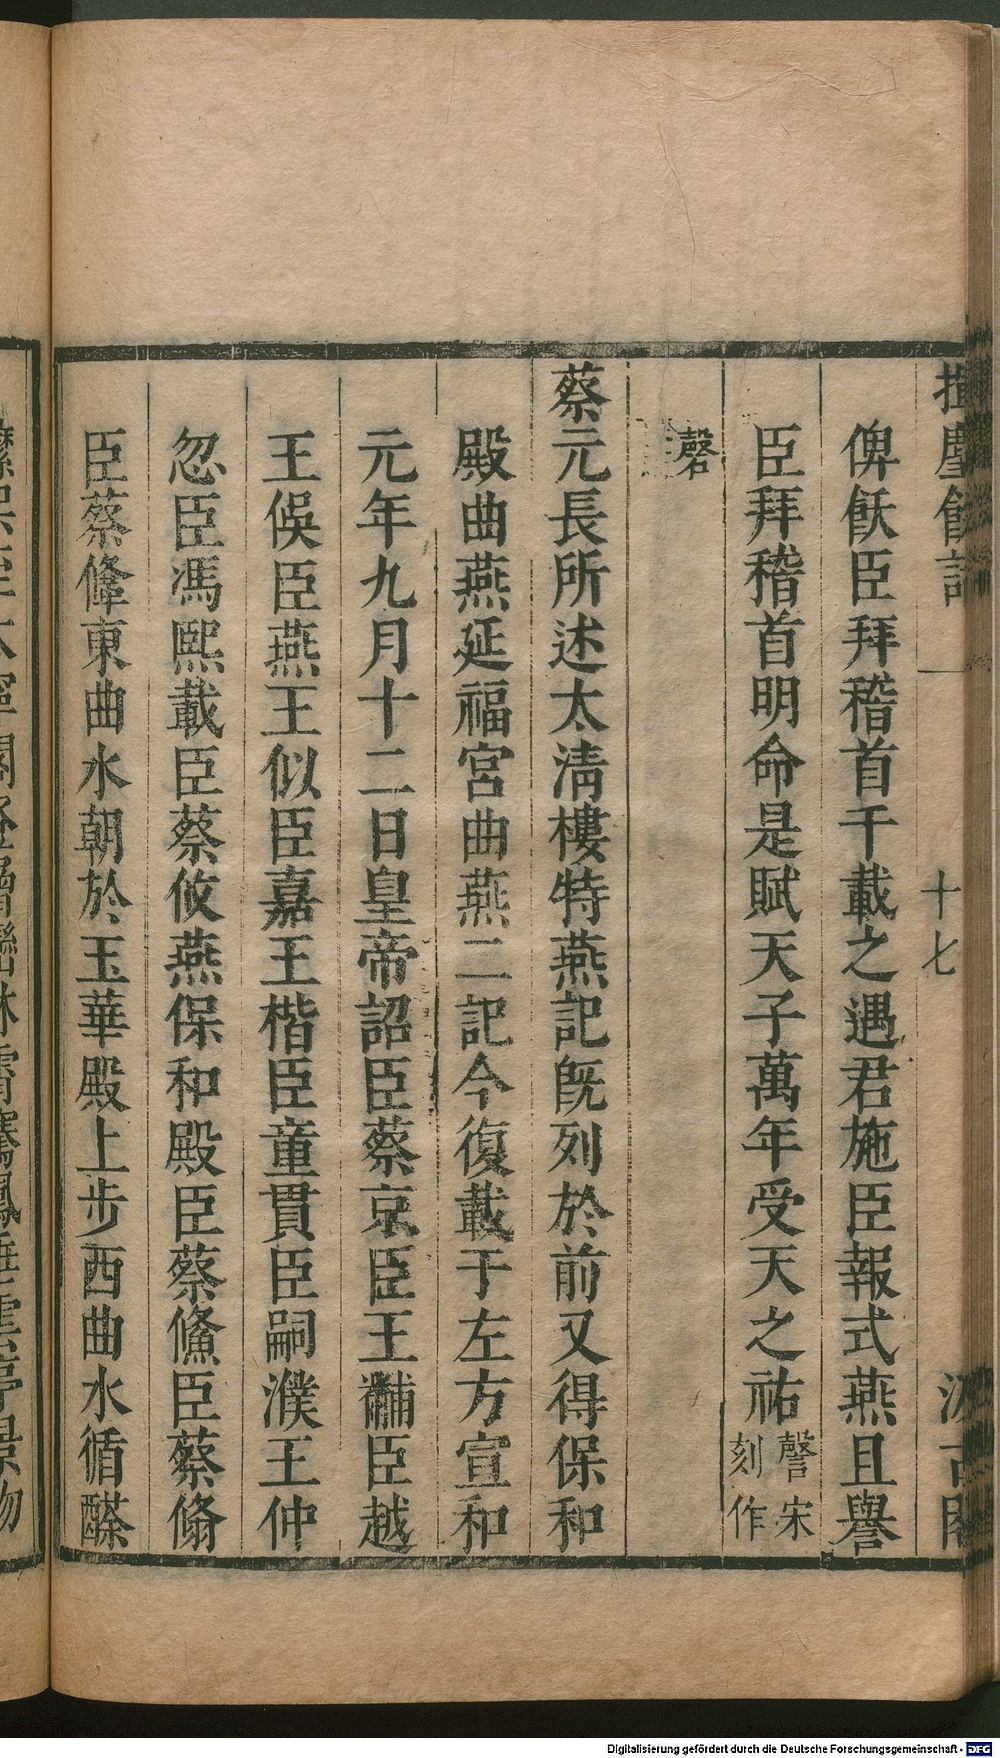 揮麈餘話 一 十七 汲古閣
俾飫臣拜稽首千載之遇君施臣報式燕且譽
臣拜稽首明命是賦天子萬年受天之祐 謦宋刻作
磬
蔡元長所述太清樓特燕記旣列於前又得保和
殿曲燕延福宮曲燕二記今復載于左方宣和
元年九月十二日皇帝詔臣蔡京臣王黼臣越
王俁臣燕王似臣嘉王楷臣童貫臣嗣濮王仲
忽臣馮熙載臣蔡攸燕保和殿臣蔡鯈臣蔡翛
臣蔡鞗東曲水朝於玉華殿上步西曲水循醾
Digitalisierung gefördert durch die Deutsche Forschungsgemeinschaft - DFG